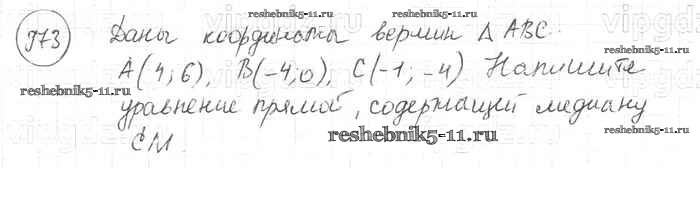 973 Даны координаты вершин Δ ABC.
A(4; 6), B(-4; 0), C(-1; -4) Напишите
уравнение прямой, содержащей медиану
CM
reshebnik5-11.ru
reshebnik5-11.ru
reshebnik5-11.ru
reshebnik5-11.ru
reshebnik5-11.ru